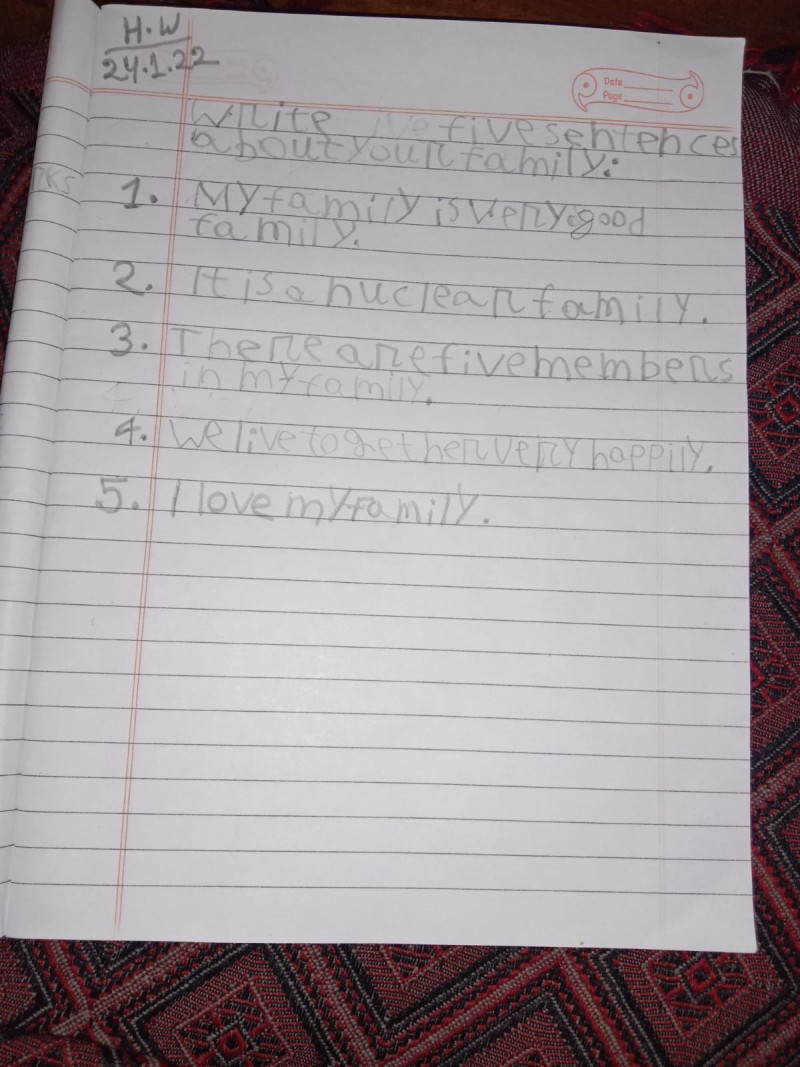 H.W
24.1.22
Date
Page
Write five sentences
about your family:
1. My family is very good
family.
2. It is a nuclear family.
3. There are five members
in my family.
4. We live together very happily.
5. I love my family.